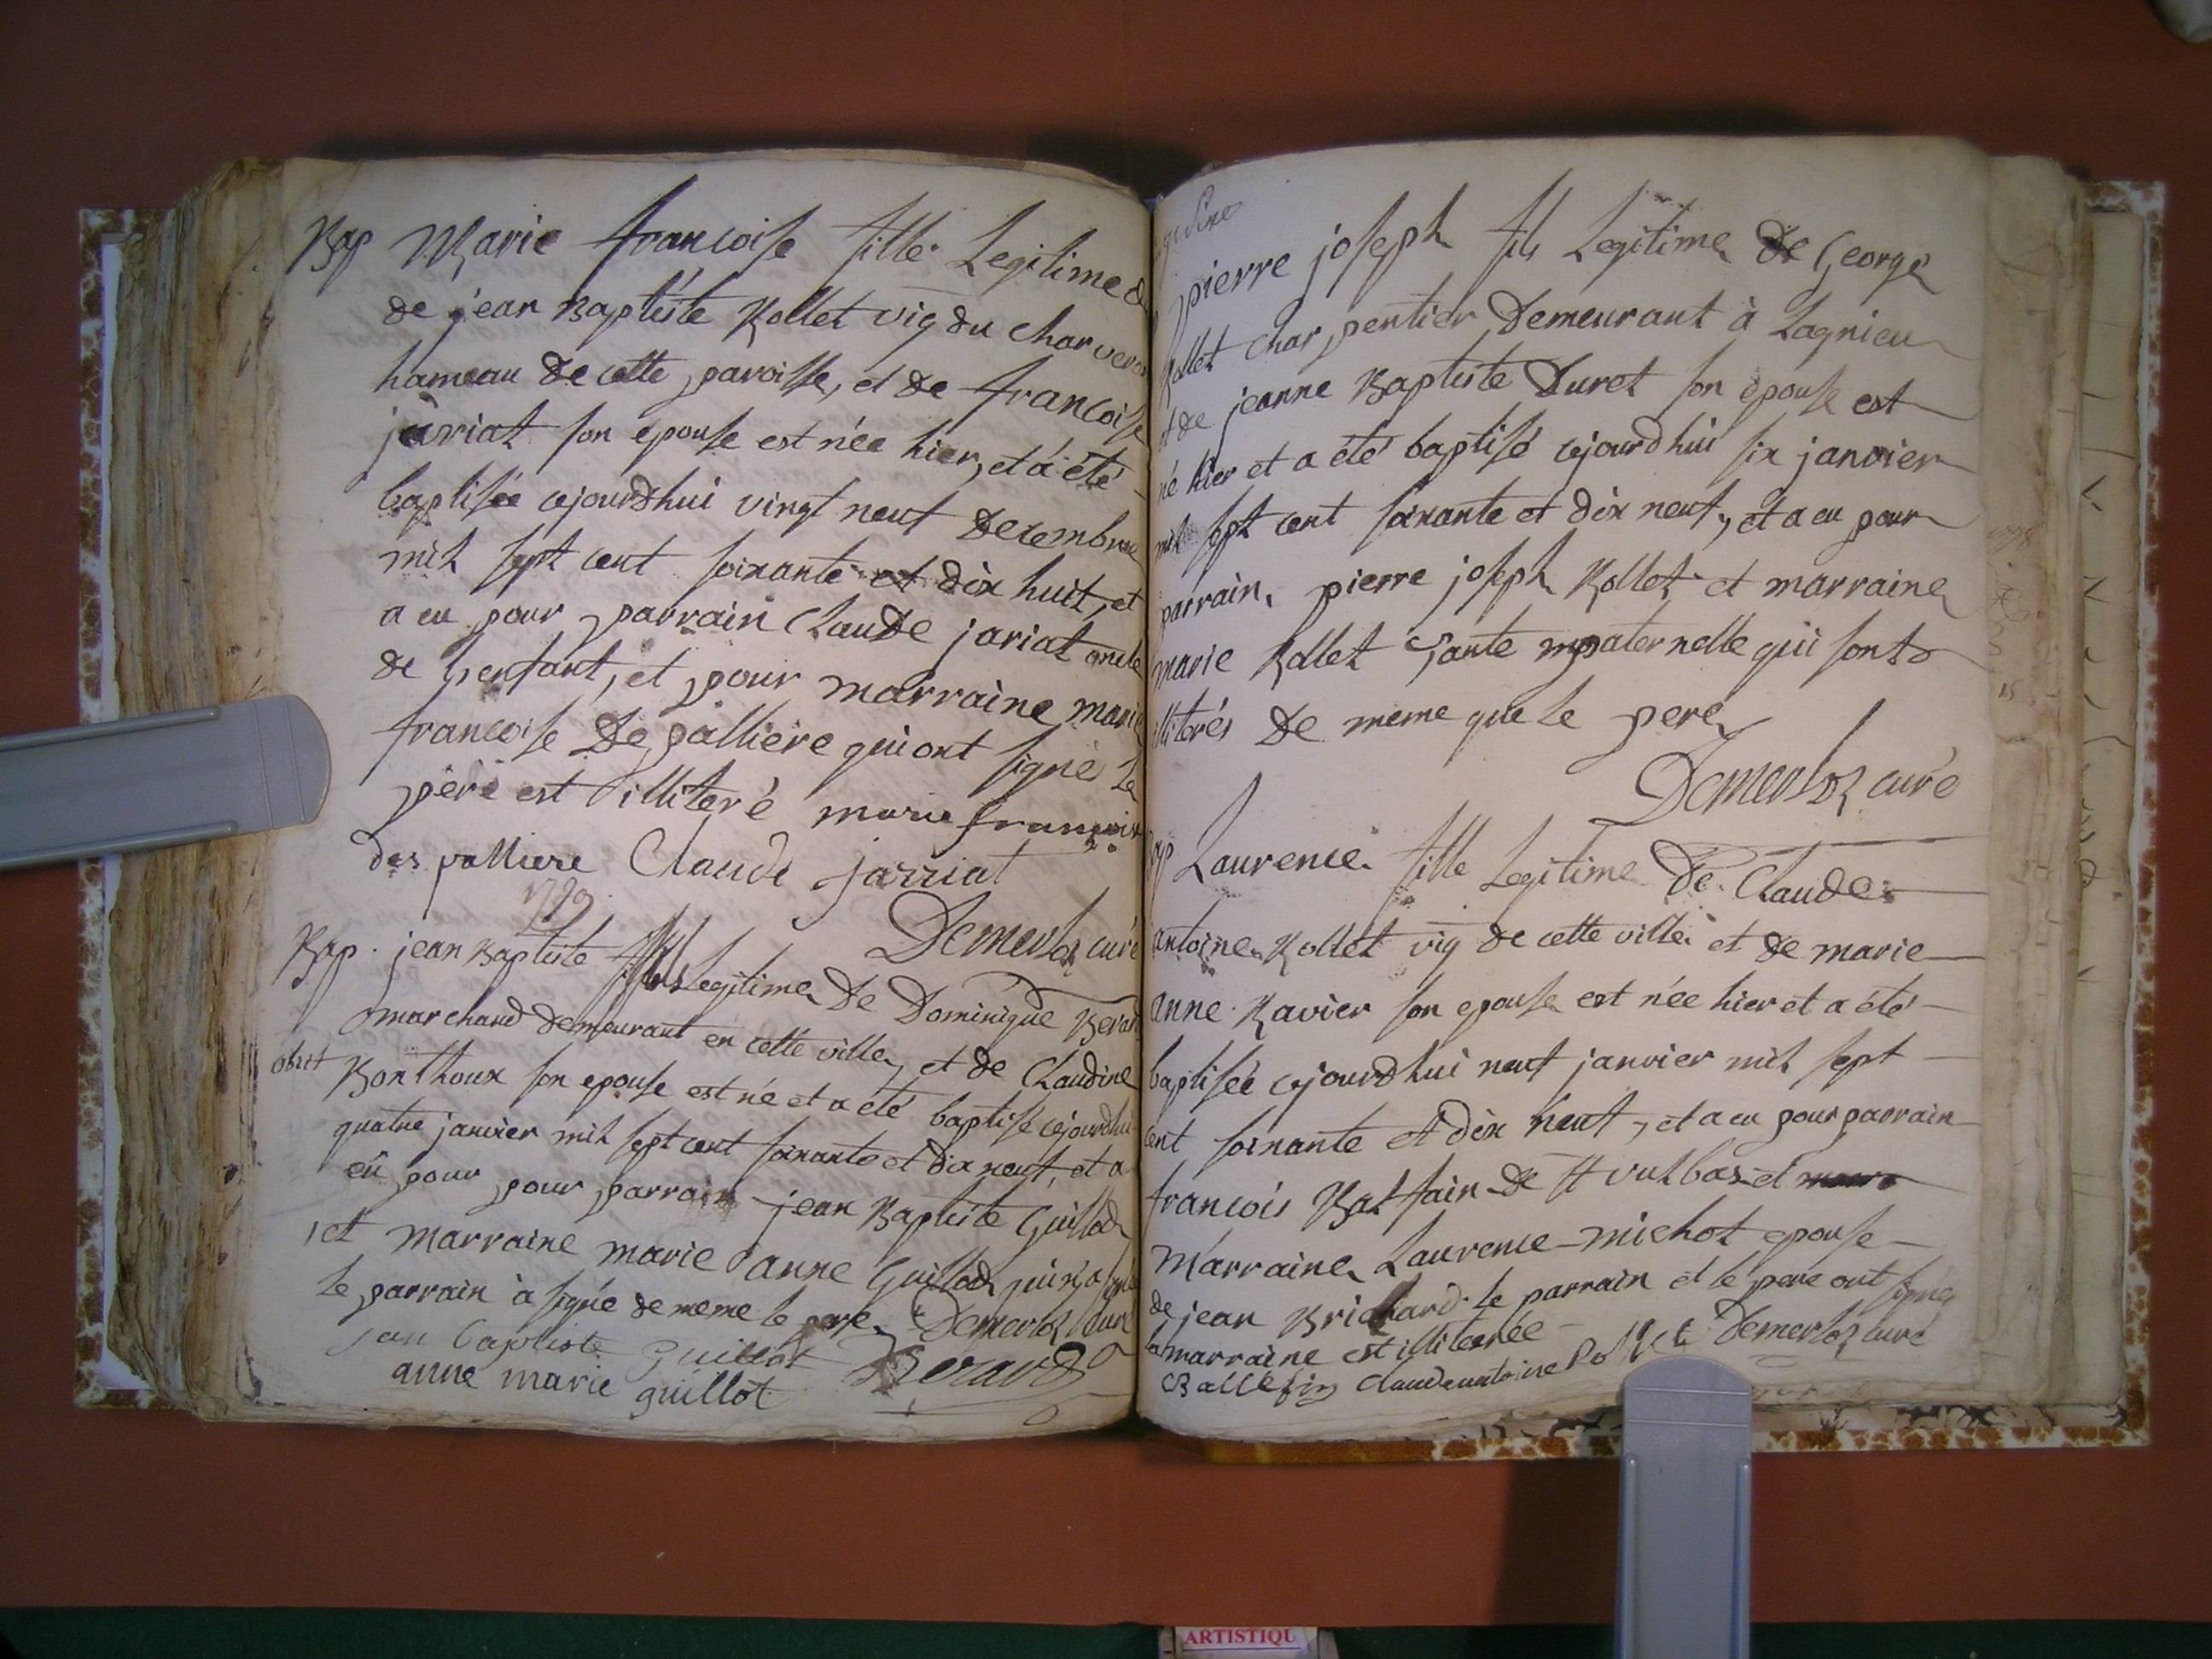 Bap Marie francoise fille Legitime
de jean Baptiste Rollet vig du charveron
hameau de cette paroisse, et de francoise
jariat son epouse est née hier, et a été
baptisée cejourdhui vingt neuf Decembre
mil sept cent soixante et dix huit, et
a eu pour parrain Claude jariat oncle
de l'enfant, et pour marraine marie
francoise De palliere qui ont signé le
pere est illiteré marie francoise
des palliere Claude jarriat
Demerloz curé
Bap. jean Baptiste fils Legitime De Dominique Berard
marchand demeurant en cette ville, et de Claudine
obiit
Bonthoux son epouse est né et a été baptisé cejourdhui
quatre janvier mil sept cent soixante et dix neuf, et a
eû pour pour parrain jean Baptiste Guillod
et marraine marie anne Guillod qui n'a signé
le parrain à signé de meme le pere Demerloz curé
jean baptiste Guillot Berard
anne marie guillot
pierre joseph fils Legitime de George
Rollet charpentier Demeurant à Lagnieu
et de jeanne Baptiste Duret son epouse est
né hier et a été baptisé cejourdhui six janvier
mil sept cent soixante et dix neuf, et a eu pour
parrain, pierre joseph Rollet et marraine
marie Rollet Tante paternelle qui sont
illiterés De meme que le pere
Demerloz curé
Bap Laurence fille Legitime De Claude
antoine Rollet vig de cette ville et de marie
anne Ravier son epouse est née hier et a été
baptisée cejourdhui neuf janvier mil sept
cent soixante et dix neuf, et a eu pour parrain
francois Balfain de St vulbas et
Marraine Laurence michot epouse
de jean Brichard le parrain et le pere ont signé
la marraine est illiterée Demerloz curé
Ballefin Claude antoine Rollet
ARTISTIQU